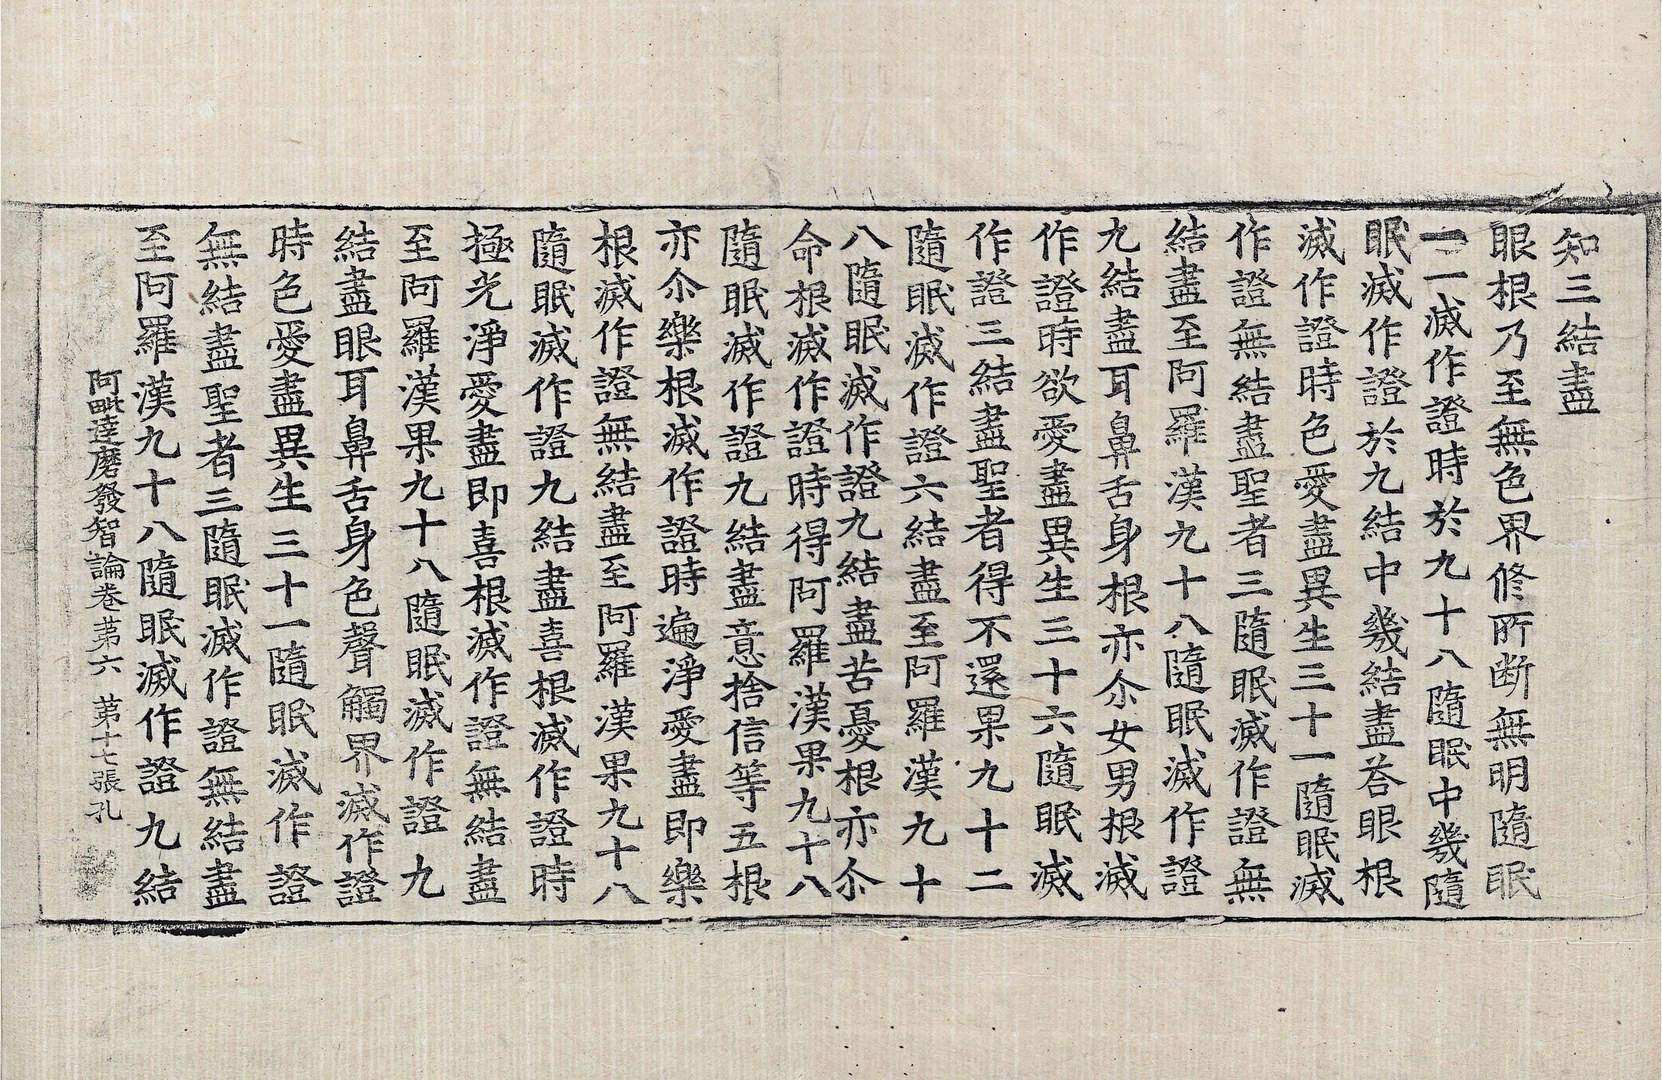 知三結盡
眼根乃至無色界修所断無明隨眠
一一滅作證時於九十八隨眠中幾隨
眠滅作證於九結中幾結盡荅眼根
滅作證時色愛盡異生三十一隨眠滅
作證無結盡聖者三隨眠滅作證無
結盡至阿羅漢九十八隨眠滅作證
九結盡耳鼻舌身根亦尒女男根滅
作證時欲愛盡異生三十六隨眠滅
作證三結盡聖者得不還果九十二
隨眠滅作證六結盡至阿羅漢九十
八隨眠滅作證九結盡苦憂根亦尒
命根滅作證時得阿羅漢果九十八
隨眠滅作證九結盡意捨信等五根
亦尒樂根滅作證時遍淨愛盡即樂
根滅作證無結盡至阿羅漢果九十八
隨眠滅作證九結盡喜根滅作證時
極光淨愛盡即喜根滅作證無結盡
至阿羅漢果九十八隨眠滅作證九
結盡眼耳鼻舌身色聲觸界滅作證
時色愛盡異生三十一隨眠滅作證
無結盡聖者三隨眠滅作證無結盡
至阿羅漢九十八隨眠滅作證九結
阿毗達磨發智論卷苐六 苐十七張孔